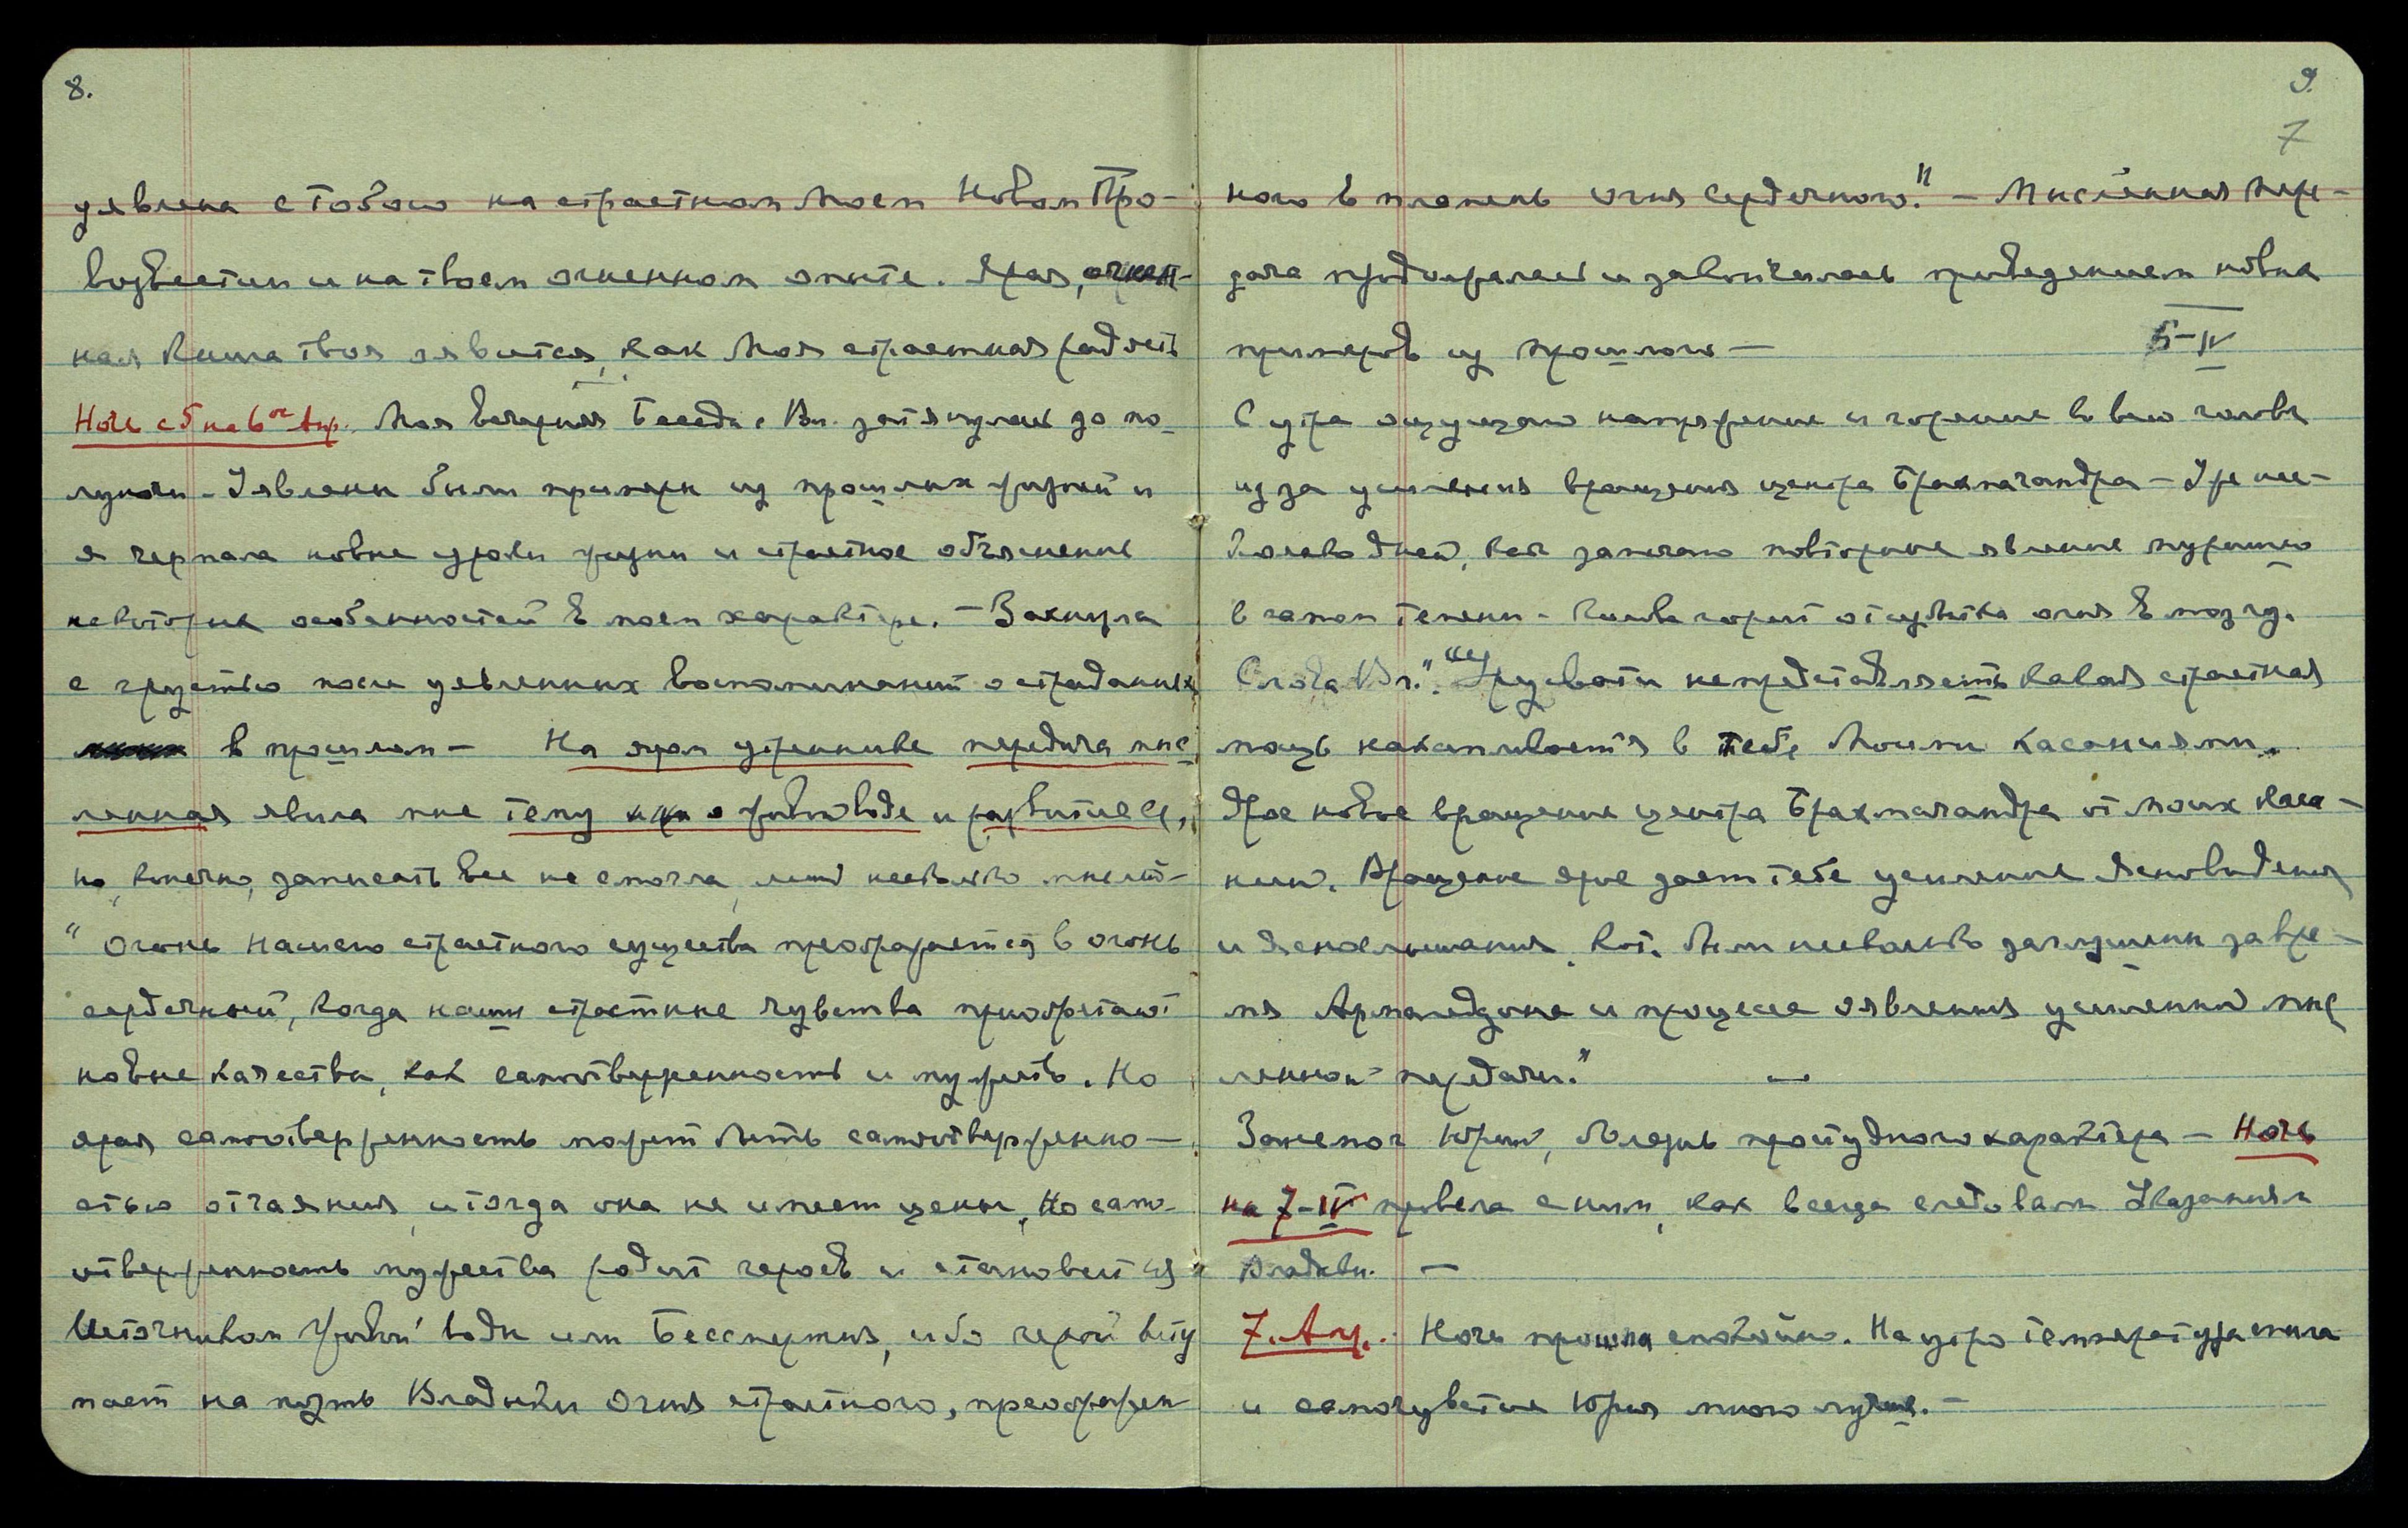 8.
уявлена с тобою на страстном Моем Новом Про-
возвестии и на твоем огненном опыте. Ярая, огнен-
ная Книга твоя оявится, как Моя страстная радость
Ночь с 5 на 6ое Апр. Моя вечерняя Беседа с Вл. затянулась до по-
луночи – Уявлены были примеры из прошлых жизней и
я черпала новые уроки жизни и страстное объяснение
некоторых особенностей в моем характере. – Заснула
с грустью после уявленных воспоминаний о страданиях
в прошлом – На яром утреннике передача мыс
ленная явила мне тему о живой воде и развитие ея,
но, конечно, записать все не смогла, лишь несколько мыслей –
" Огонь нашего страстного существа преображается в огонь
сердечный, когда наши страстные чувства приобретают
новые качества, как самоотверженность и мужество. Но
ярая самоотверженность может быть самоотверженно-
стью отчаяния, и тогда она не имеет цены, Но само-
отверженность мужества родит героев и становится
Источником Живой воды или Бессмертия, ибо герой всту
пает на путь Владыки Огня страстного, преображен
9.
7
ного в пламень огня сердечного." – Мысленная пере-
дача продолжалась и закончилась приведением новых
примеров из прошлого –
6-IV
С утра ощущаю напряжение и горение во всю голову
из за усиления вращения центра Брахмарандра – Уже нес-
колько дней, как замечаю повторное явление пузырьков
в самом темени – Голова горит от избытка огня в мозгу.
Слова Вл.: "Урусвати не представляешь какая страстная
мощь накапливается в тебе Моими Касаниями.
Ярое новое вращение центра Брахмарандра от Моих Каса-
ний. Вращение ярое дает тебе усиление Ясновидения
и Яснослышания, кот. были несколько заглушены за вре-
мя Армагеддона и процесса оявления усиленной мыс
ленной передачи."
Занемог Юрий, болезнь простудного характера – Ночь
на 7-IV провела с ним, как всегда следовали Указаниям
Владыки. –
7. Апр. Ночь прошла спокойно. На утро температура спала
и самочувствие Юрия много лучше. –